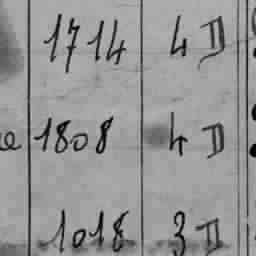 1714 4 D
1808 4 D
1018 3 D